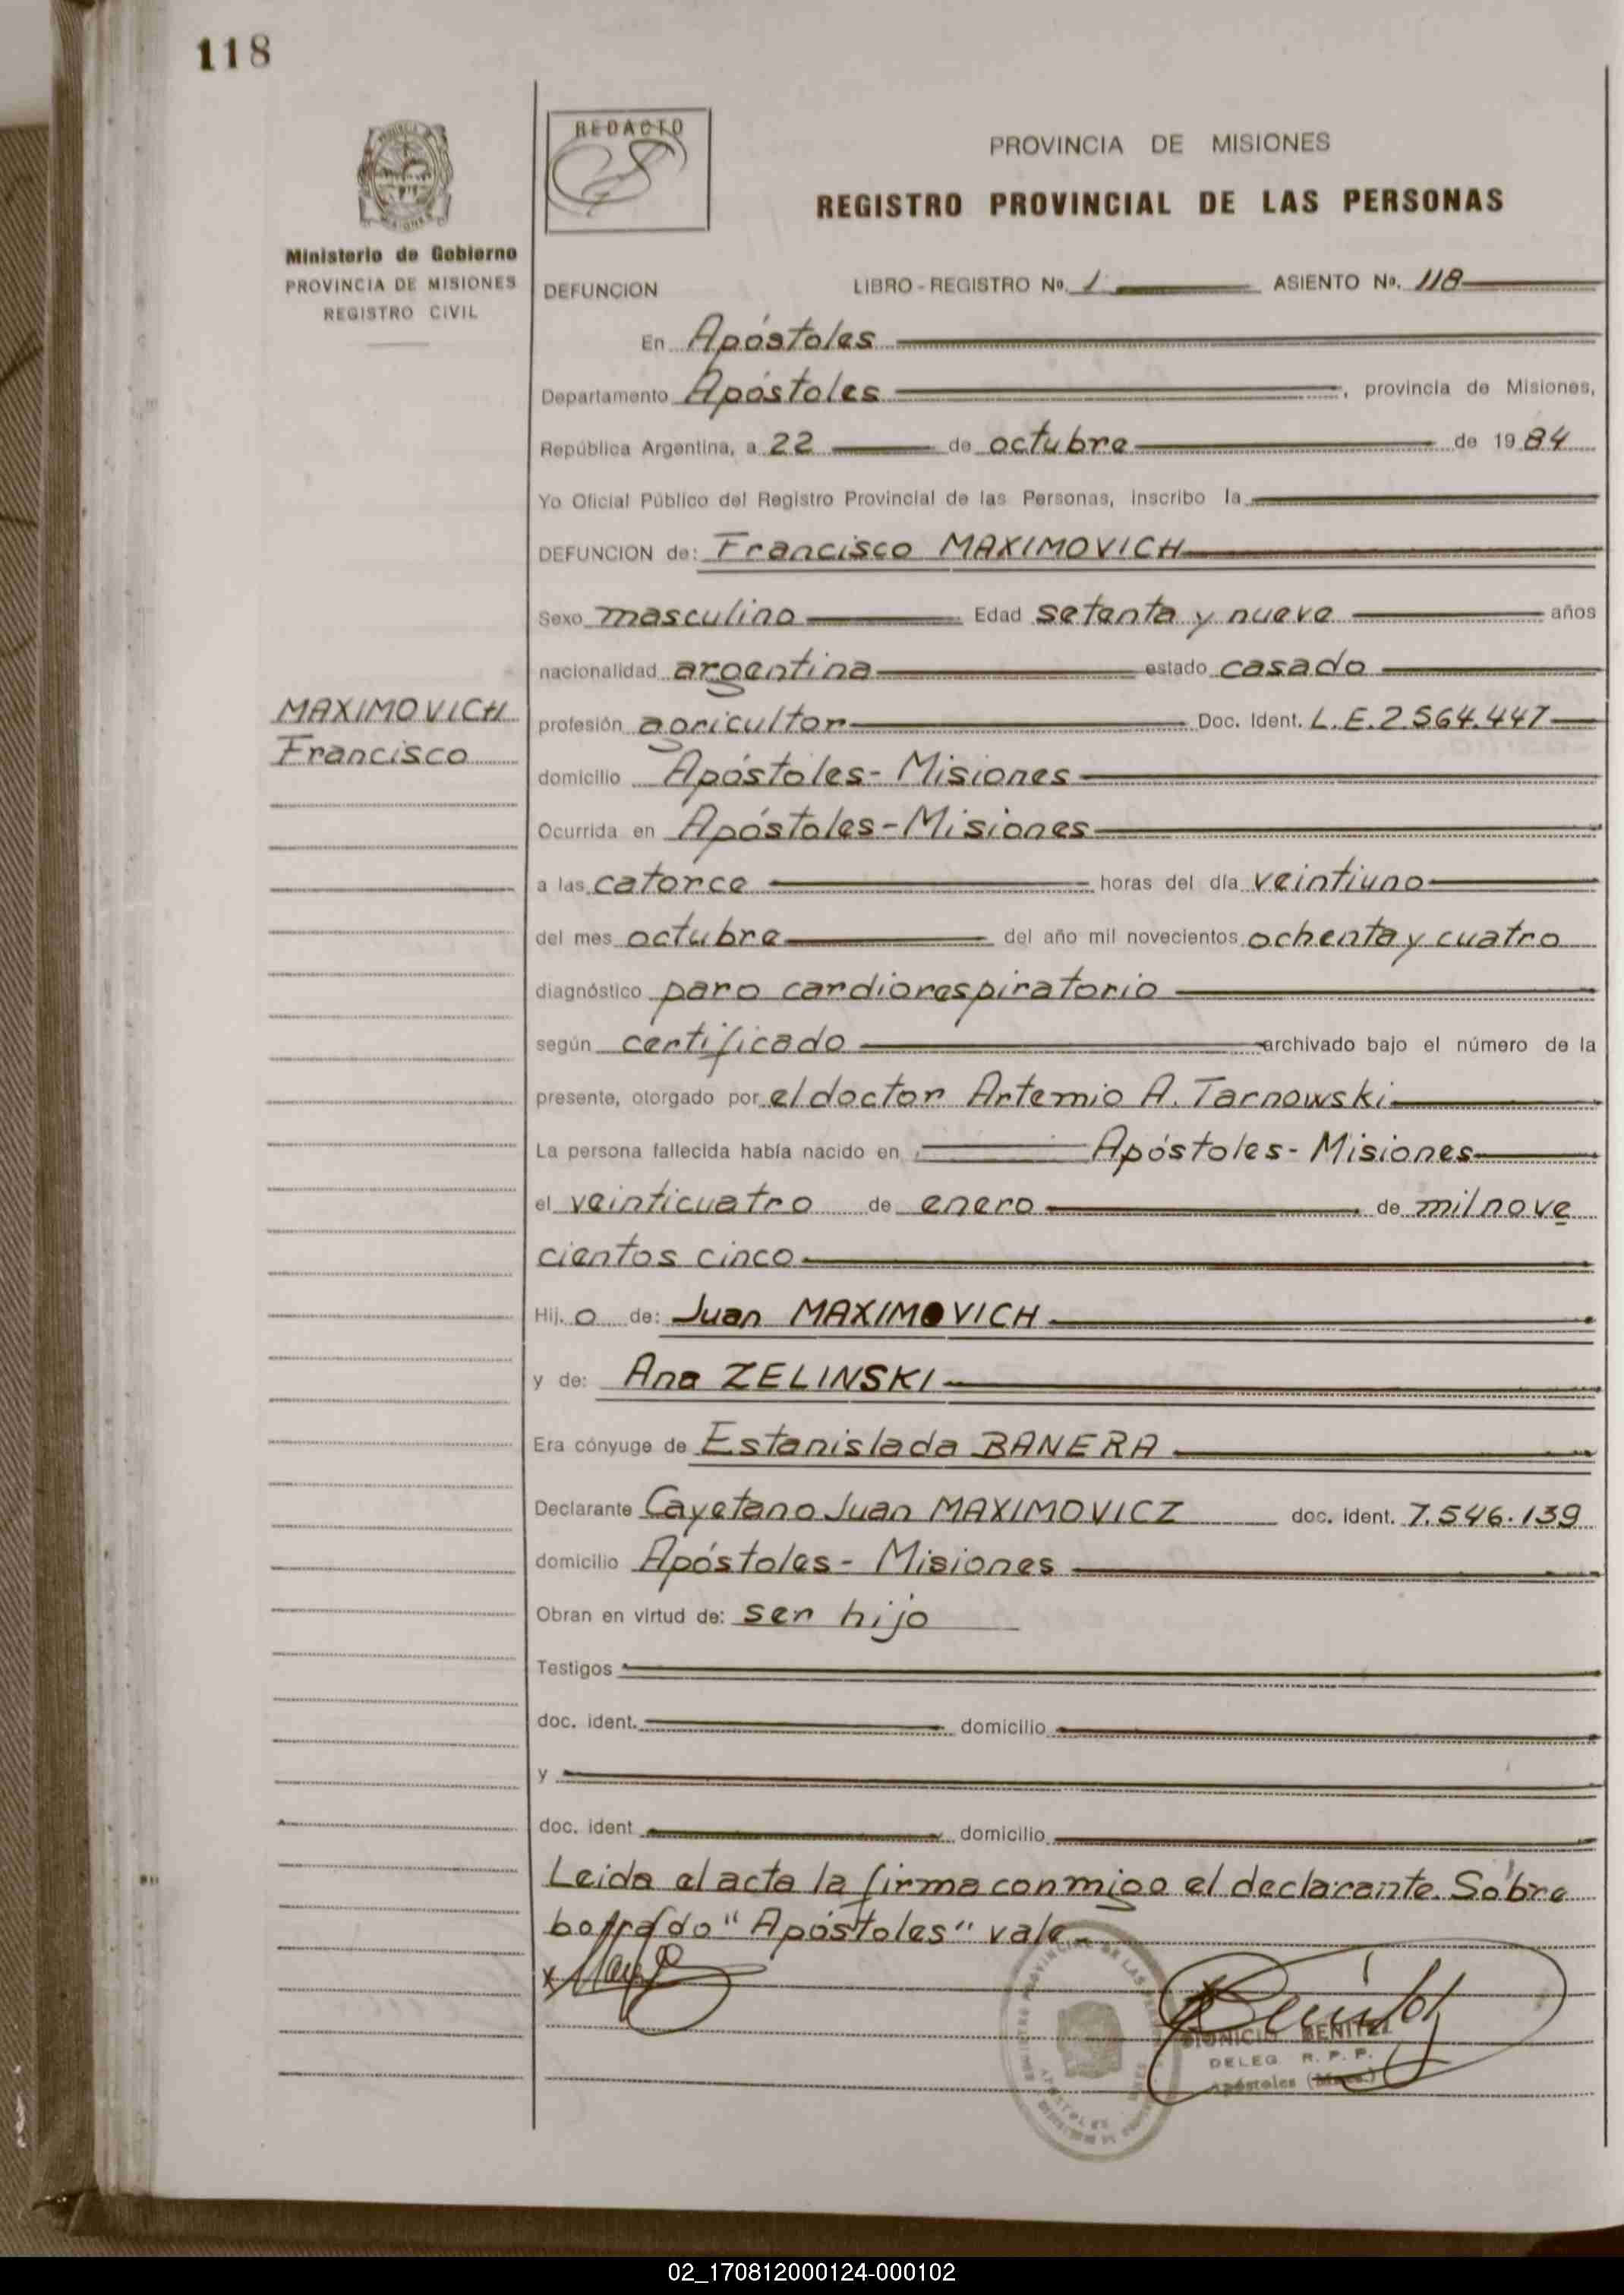 118
REDACTO
PROVINCIA DE MISIONES
REGISTRO PROVINCIAL DE LAS PERSONAS
Ministerio de Gobierno
PROVINCIA DE MISIONES
REGISTRO CIVIL
DEFUNCION LIBRO - REGISTRO No. 1 ASIENTO No. 118
En Apóstoles
Departamento Apóstoles, provincia de Misiones,
República Argentina, a 22 de octubre de 1984
Yo Oficial Público del Registro Provincial de las Personas, inscribo la
DEFUNCION de: Francisco MAXIMOVICH
Sexo masculino Edad setenta y nueve años
nacionalidad argentina estado casado
MAXIMOVICH
Francisco
profesión agricultor Doc. Ident. L.E.2564.447
domicilio Apóstoles- Misiones
Ocurrida en Apóstoles-Misiones
a las catorce horas del día veintiuno
del mes octubre del año mil novecientos ochenta y cuatro
diagnóstico paro cardiorespiratorio
según certificado archivado bajo el número de la
presente, otorgado por el doctor Artemio A. Tarnowski
La persona fallecida había nacido en Apóstoles- Misiones
el veinticuatro de enero de mil nove
cientos cinco
Hij.o de: Juan MAXIMOVICH
y de: Ana ZELINSKI
Era cónyuge de Estanislada BANERA
Declarante Cayetano Juan MAXIMOVICZ doc. ident. 7.546.139
domicilio Apóstoles- Misiones
Obran en virtud de: ser hijo
Testigos
doc. ident. domicilio
y
doc. ident domicilio
Leida el acta la firma conmigo el declarante. Sobre
borrado "Apóstoles" vale.
DIONICIO BENITEZ
DELEG R. P. P.
Apóstoles (Mnes.)
02_170812000124-000102